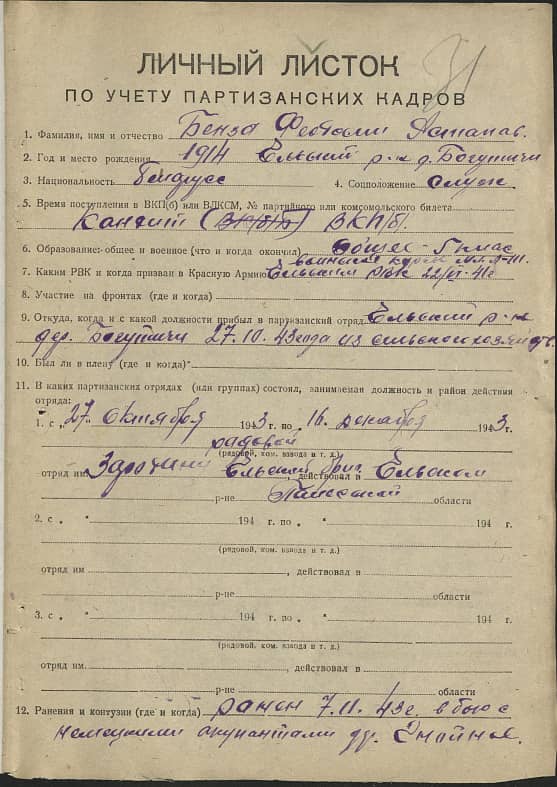 31
ЛИЧНЫЙ ЛИСТОК
ПО УЧЕТУ ПАРТИЗАНСКИХ КАДРОВ
1. Фамилия, имя и отчество Бенза
2. Год и место рождения 1914 Ельский р-н д. Богутичи
3. Национальность 4. Соцположение служ
5. Время поступления в ВКП(б) или ВЛКСМ, № партийного или комсомольского билета
ВКП/б/
6. Образование: общее и военное (что и когда окончил) общее - 5 клас
7. Каким РВК и когда призван в Красную Армию Ельским РВК 22/VI-41г
8. Участие на фронтах (где и когда)
9. Откуда, когда и с какой должности прибыл в партизанский отряд Ельский р-н
дер. Богутичи 27.10.43 года из сельского
10. Был ли в плену (где и когда)
11. В каких партизанских отрядах (или группах) состоял, занимаемая должность и район действия
отряда:
1. с „27" октября 1943 г. по „16" декабря 1943 г.
рядовой
(рядовой, ком. взвода и т. д.)
отряд им Ельский бриг, действовал в Ельском
р-не Полесской области
2. с „ " 194 г. по „ " 194 г.
(рядовой, ком. взвода и т. д.)
отряд им , действовал в
р-не области
3. с „ " 194 г. по „ " 194 г.
(рядовой, ком. взвода и т. д.)
отряд им , действовал в
р-не области
12. Ранения и контузии (где и когда) ранен 7.11.43г. в бою с
немецкими окупантами др.